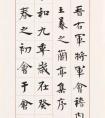 晉右軍將軍會稽內
王羲之蘭亭集序
和九年歲在癸
春之初會于會